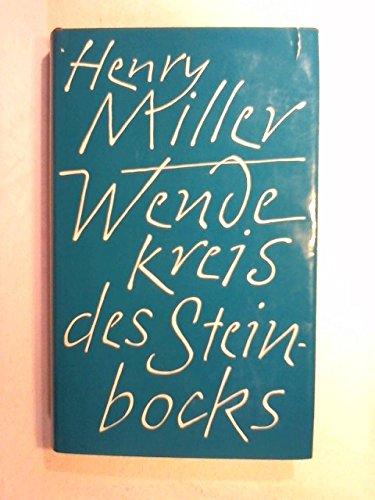 Henry
Miller
Wende
kreis
des Stein-
bocks